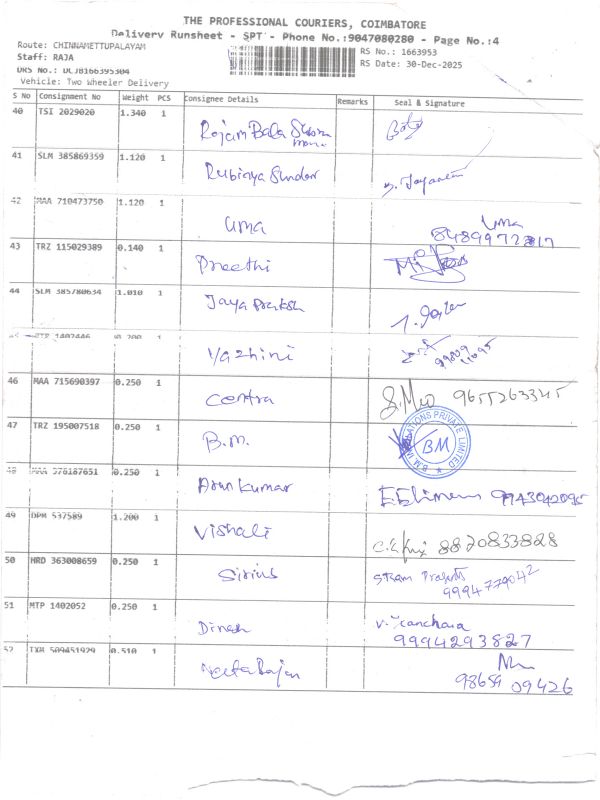 THE PROFESSIONAL COURIERS, COIMBATORE
Delivery Runsheet - SPT - Phone No.:9047080280 - Page No.:4
Route: CHINNAMETTUPALAYAM
Staff: RAJA
DRS No.: DCJB166395304
Vehicle: Two Wheeler Delivery
RS No.: 1663953
RS Date: 30-Dec-2025
S No Consignment No Weight PCS Consignee Details Remarks Seal & Signature
40 TSI 2029020 1.340 1 Rajam Bala
41 SLM 385869359 1.120 1 Rubinya Sundar
42 MAA 710473750 1.120 1 Uma Uma
43 TRZ 115029389 0.140 1 Preethi
44 SLM 385780634 1.010 1 Jaya Praksh
1402446 0.200 1 Yazhini
46 MAA 715690397 0.250 1 Centra 9655263345
47 TRZ 195007518 0.250 1 B.M. BM
PRIVATE LIMITED
48 MAA 376187651 0.250 1 Arun kumar 9943042095
49 DPM 537589 1.200 1 Vishali 8820833828
50 HRD 363008659 0.250 1 Sirius
51 MTP 1402052 0.250 1 Dinesh
9994293827
52 TXM 509451929 0.510 1
09426